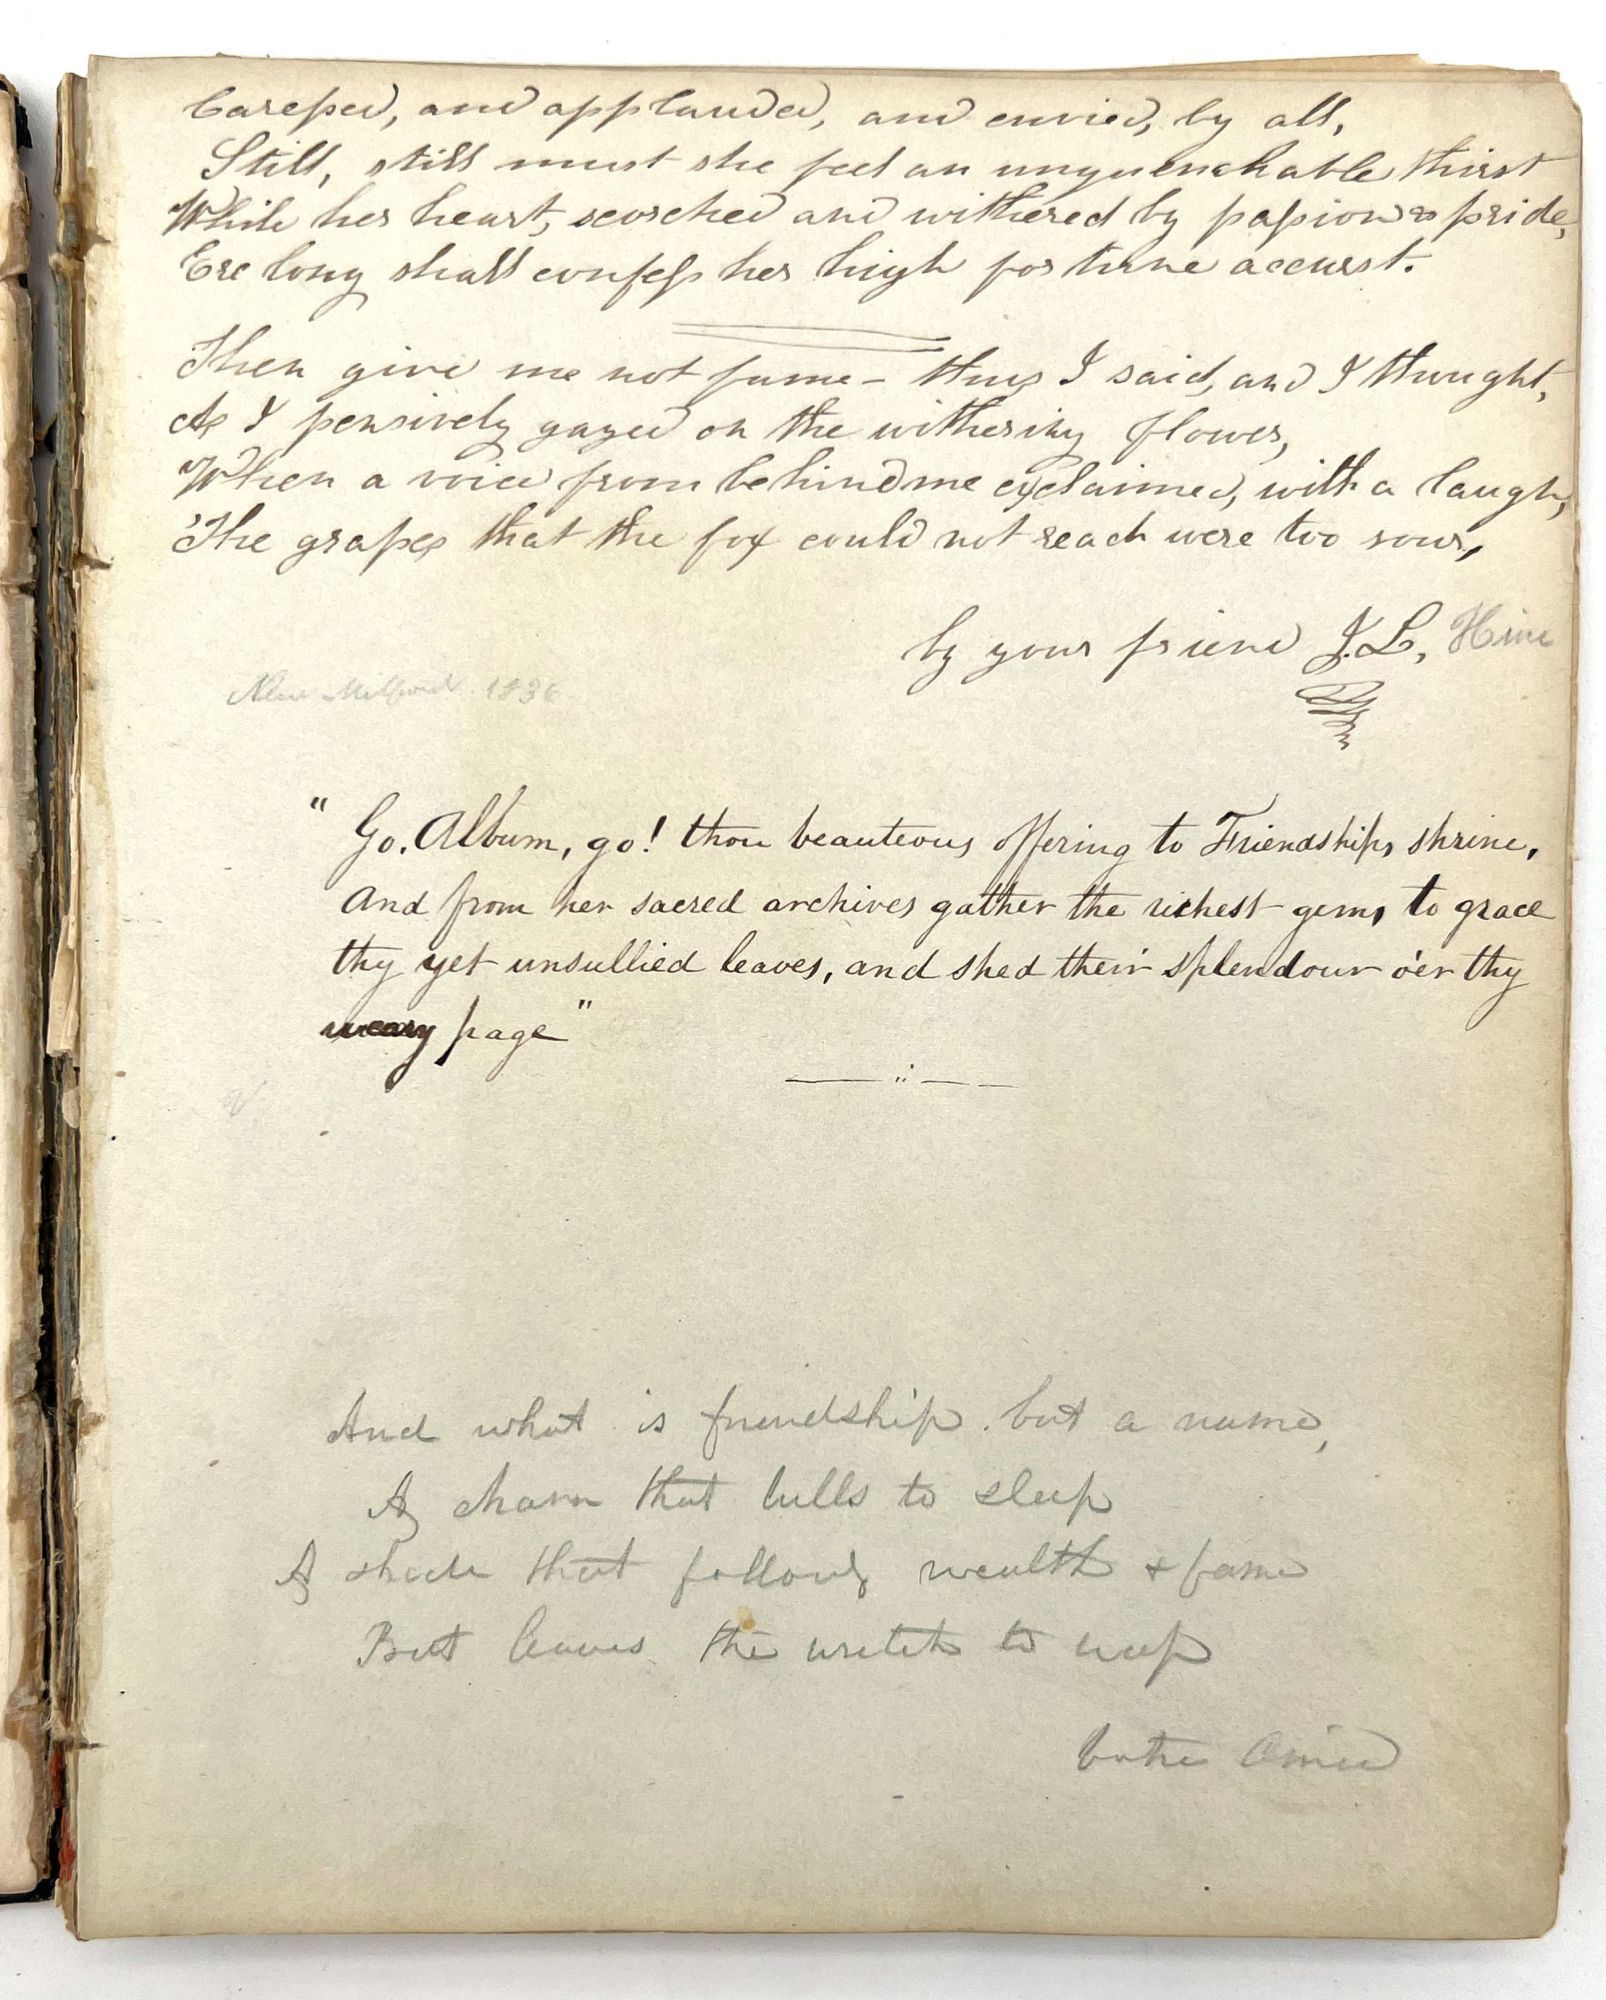 Caressed, and applauded, and envied, by all,
Still, still must she feel an unquenchable thirst
While her heart, scorched and withered by passion & pride,
Ere long shall confess her high fortune accurst.
Then give me not fame – thus I said, and I thought,
As I pensively gazed on the withering flower,
When a voice from behind me exclaimed, with a laugh,
The grapes that the fox could not reach were too sour,
by your friend J.L, Hine
New Milford 1836
"Go, Album, go! thou beauteous offering to Friendships shrine,
And from her sacred archives gather the richest gems to grace
thy yet unsullied leaves, and shed their splendour o'er thy
weary page"
And what is friendship but a name,
A charm that lulls to sleep
A shade that follows wealth & fame
But leaves the wretch to weep